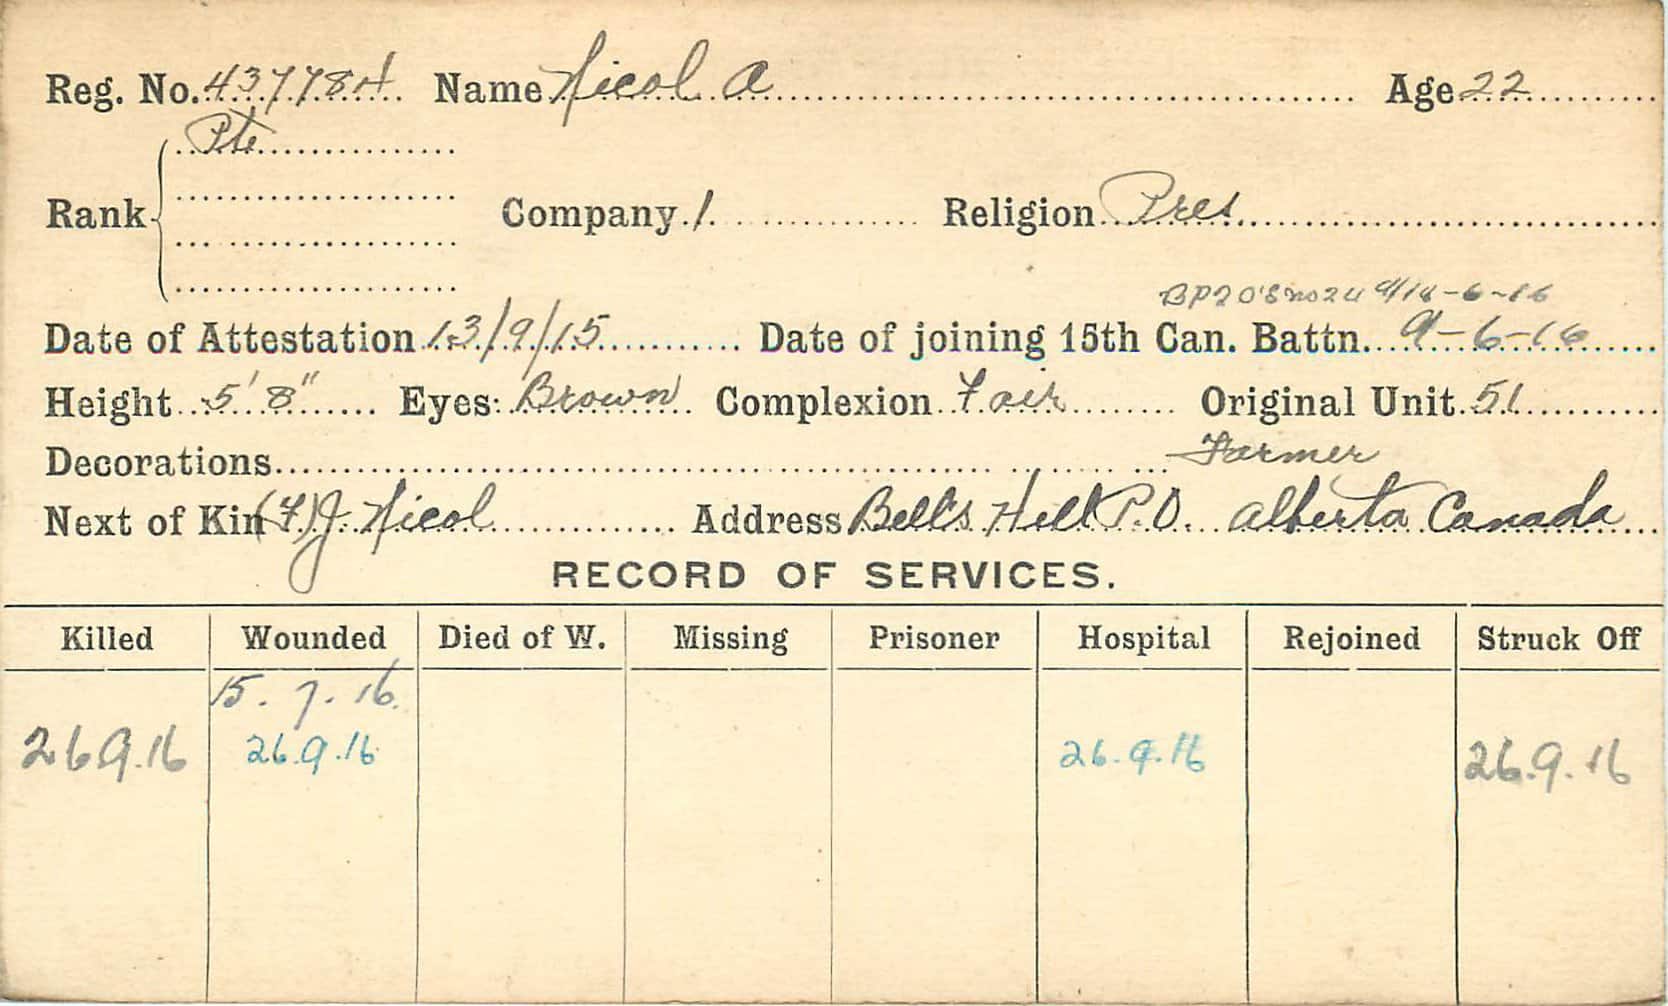 Reg. No. 437784 Name Nicol A Age 22
Pte
Rank Company 1 Religion Pres
BP20's no 24 d/14-6-16
Date of Attestation 13/9/15 Date of joining 15th Can. Battn. 9-6-16
Height 5' 8" Eyes: Brown Complexion Fair Original Unit 51
Decorations Farmer
Next of Kin (F) J. Nicol Address Bell's Hill P.O. Alberta Canada
RECORD OF SERVICES.
Killed Wounded Died of W. Missing Prisoner Hospital Rejoined Struck Off
15. 7. 16.
26 9.16 26.9.16 26.9.16 26.9.16